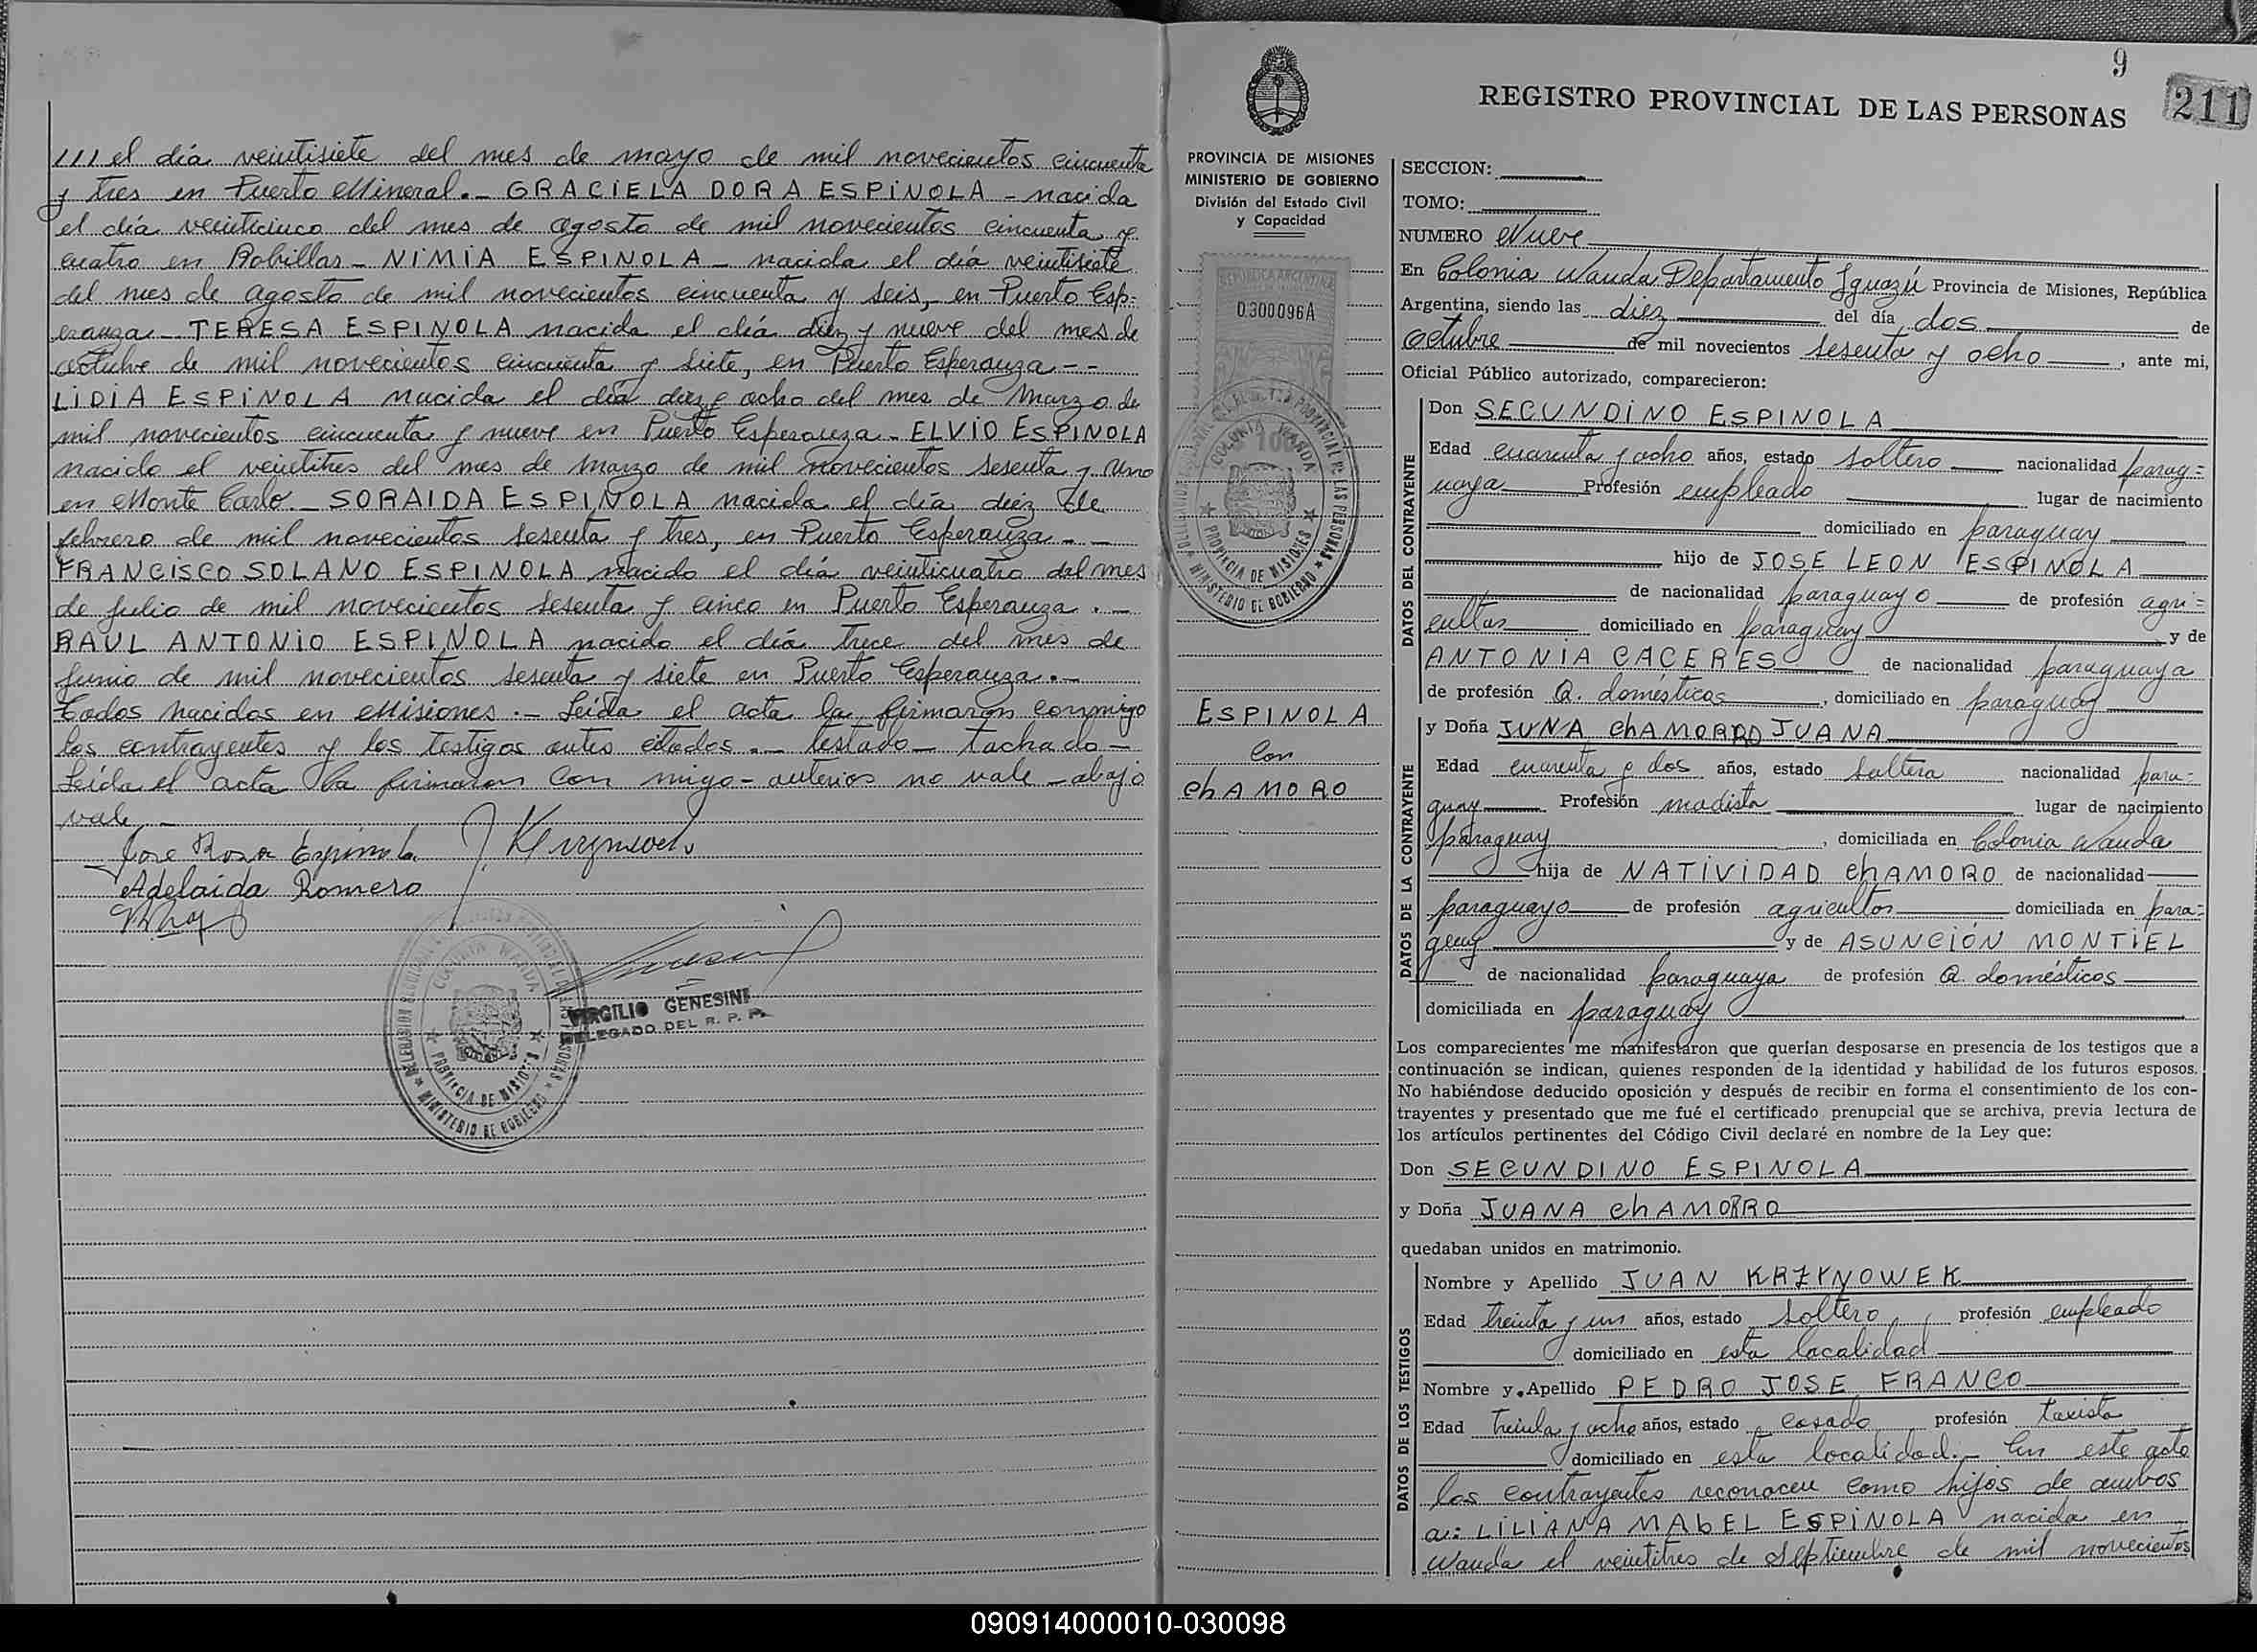 /// el día veintisiete del mes de mayo de mil novecientos cincuenta
y tres en Puerto Mineral._ GRACIELA DORA ESPINOLA - nacida
el día veinticinco del mes de agosto de mil novecientos cincuenta y
cuatro en Bobillas _ NIMIA ESPINOLA _ nacida el día veintisiete
del mes de agosto de mil novecientos cincuenta y seis, en Puerto Esp=
eranza _ TERESA ESPINOLA nacida el día diez y nueve del mes de
octubre de mil novecientos cincuenta y siete, en Puerto Esperanza - -
LIDIA ESPINOLA nacida el día diez y ocho del mes de Marzo de
mil novecientos cincuenta y nueve en Puerto Esperanza - ELVIO ESPINOLA
nacido el veintitres del mes de marzo de mil novecientos sesenta y uno
en Monte Carlo._ SORAIDA ESPINOLA nacida el día diez de
febrero de mil novecientos sesenta y tres, en Puerto Esperanza - _
FRANCISCO SOLANO ESPINOLA nacido el día veinticuatro del mes
de Julio de mil novecientos sesenta y cinco en Puerto Esperanza . _
RAUL ANTONIO ESPINOLA nacido el día trece del mes de
Junio de mil novecientos sesenta y siete en Puerto Esperanza._
Todos nacidos en Misiones ._ Leida el acta la firmaron conmigo
los contrayentes y los testigos antes citados._ testado _ tachado _
Leída el acta la firmaron con migo - anterior no vale - abajo
vale _
Jose Rosa Espinola
Adelaida Romero
VIRGILIO GENESINI
DELEGADO DEL R. P. P.
COLONIA WANDA
PROVINCIA DE MISIONES
MINISTERIO DE GOBIERNO
9
REGISTRO PROVINCIAL DE LAS PERSONAS
211
PROVINCIA DE MISIONES
MINISTERIO DE GOBIERNO
División del Estado Civil
y Capacidad
REPUBLICA ARGENTINA
0300096A
COLONIA WANDA
PROVINCIA DE MISIONES
MINISTERIO DE GOBIERNO
ESPINOLA
con
ChAMORO
SECCION:
TOMO:
NUMERO Nueve
En Colonia Wanda Departamento Iguazú Provincia de Misiones, República
Argentina, siendo las diez del día dos de
octubre de mil novecientos sesenta y ocho, ante mi,
Oficial Público autorizado, comparecieron:
DATOS DEL CONTRAYENTE
Don SECUNDINO ESPINOLA
Edad cuarenta y ocho años, estado soltero nacionalidad parag=
uaya Profesión empleado lugar de nacimiento
domiciliado en paraguay
hijo de JOSE LEON ESPINOLA
de nacionalidad paraguayo de profesión agri=
cultor domiciliado en paraguay y de
ANTONIA CACERES de nacionalidad paraguaya
de profesión Q. domésticos, domiciliado en paraguay
DATOS DE LA CONTRAYENTE
y Doña JUNA ChAMORRO JUANA
Edad cuarenta y dos años, estado soltera nacionalidad para=
guay Profesión modista lugar de nacimiento
paraguay, domiciliada en Colonia Wanda
hija de NATIVIDAD ChAMORO de nacionalidad
paraguayo de profesión agricultor domiciliada en para=
guay y de ASUNCIÓN MONTIEL
de nacionalidad paraguaya de profesión Q. domésticos
domiciliada en paraguay
Los comparecientes me manifestaron que querían desposarse en presencia de los testigos que a
continuación se indican, quienes responden de la identidad y habilidad de los futuros esposos.
No habiéndose deducido oposición y después de recibir en forma el consentimiento de los con-
trayentes y presentado que me fué el certificado prenupcial que se archiva, previa lectura de
los artículos pertinentes del Código Civil declaré en nombre de la Ley que:
Don SECUNDINO ESPINOLA
y Doña JUANA ChAMORRO
quedaban unidos en matrimonio.
DATOS DE LOS TESTIGOS
Nombre y Apellido JUAN KRZYNOWEK
Edad treinta y un años, estado soltero profesión empleado
domiciliado en esta localidad
Nombre y Apellido PEDRO JOSE FRANCO
Edad treinta y ocho años, estado casado profesión taxista
domiciliado en esta localidad._ En este acto
los contrayentes reconocen como hijos de ambos
a: LILIANA MAbEL ESPINOLA nacida en
Wanda el veintitres de septiembre de mil novecientos
090914000010-030098